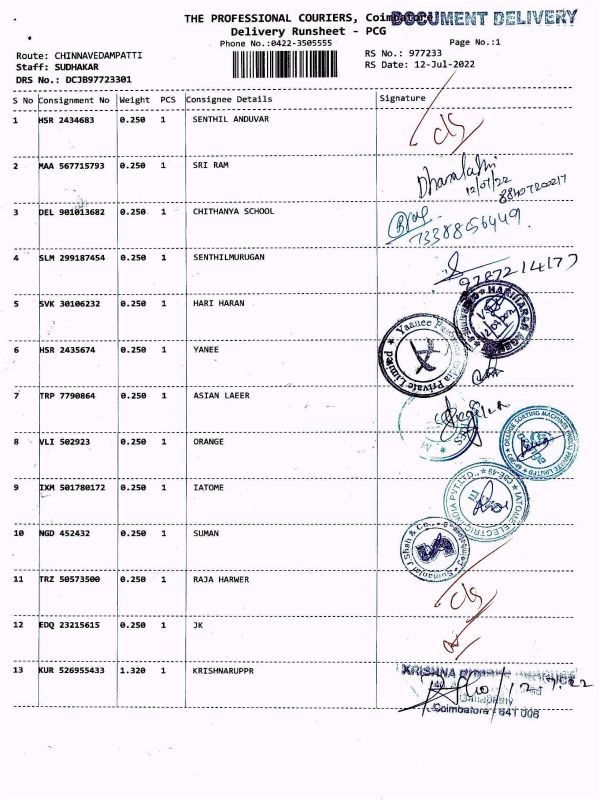 THE PROFESSIONAL COURIERS, Coimbatore
DOCUMENT DELIVERY
Delivery Runsheet - PCG
Phone No.:0422-3505555
Page No.:1
Route: CHINNAVEDAMPATTI
RS No.: 977233
Staff: SUDHAKAR
RS Date: 12-Jul-2022
DRS No.: DCJB97723301
S No Consignment No Weight PCS Consignee Details Signature
1 HSR 2434683 0.250 1 SENTHIL ANDUVAR
2 MAA 567715793 0.250 1 SRI RAM
12/07/22
3 DEL 901013682 0.250 1 CHITHANYA SCHOOL
7338856449
4 SLM 299187454 0.250 1 SENTHILMURUGAN
9787214177
5 SVK 30106232 0.250 1 HARI HARAN
6 HSR 2435674 0.250 1 YANEE
Yanee Private Limited
7 TRP 7790864 0.250 1 ASIAN LAEER
8 VLI 502923 0.250 1 ORANGE
ORANGE SORTING MACHINES (INDIA) PRIVATE LIMITED
9 IXM 501780172 0.250 1 IATOME
IATOME ELECTRIC INDIA PVT.LTD., CBE-49
10 NGD 452432 0.250 1 SUMAN
Sumanlal J Shah & Co.,
11 TRZ 50573500 0.250 1 RAJA HARWER
12 EDQ 23215615 0.250 1 JK
13 KUR 526955433 1.320 1 KRISHNARUPPR
KRISHNA
12.7.22
Ganapathy
Coimbatore - 641 006